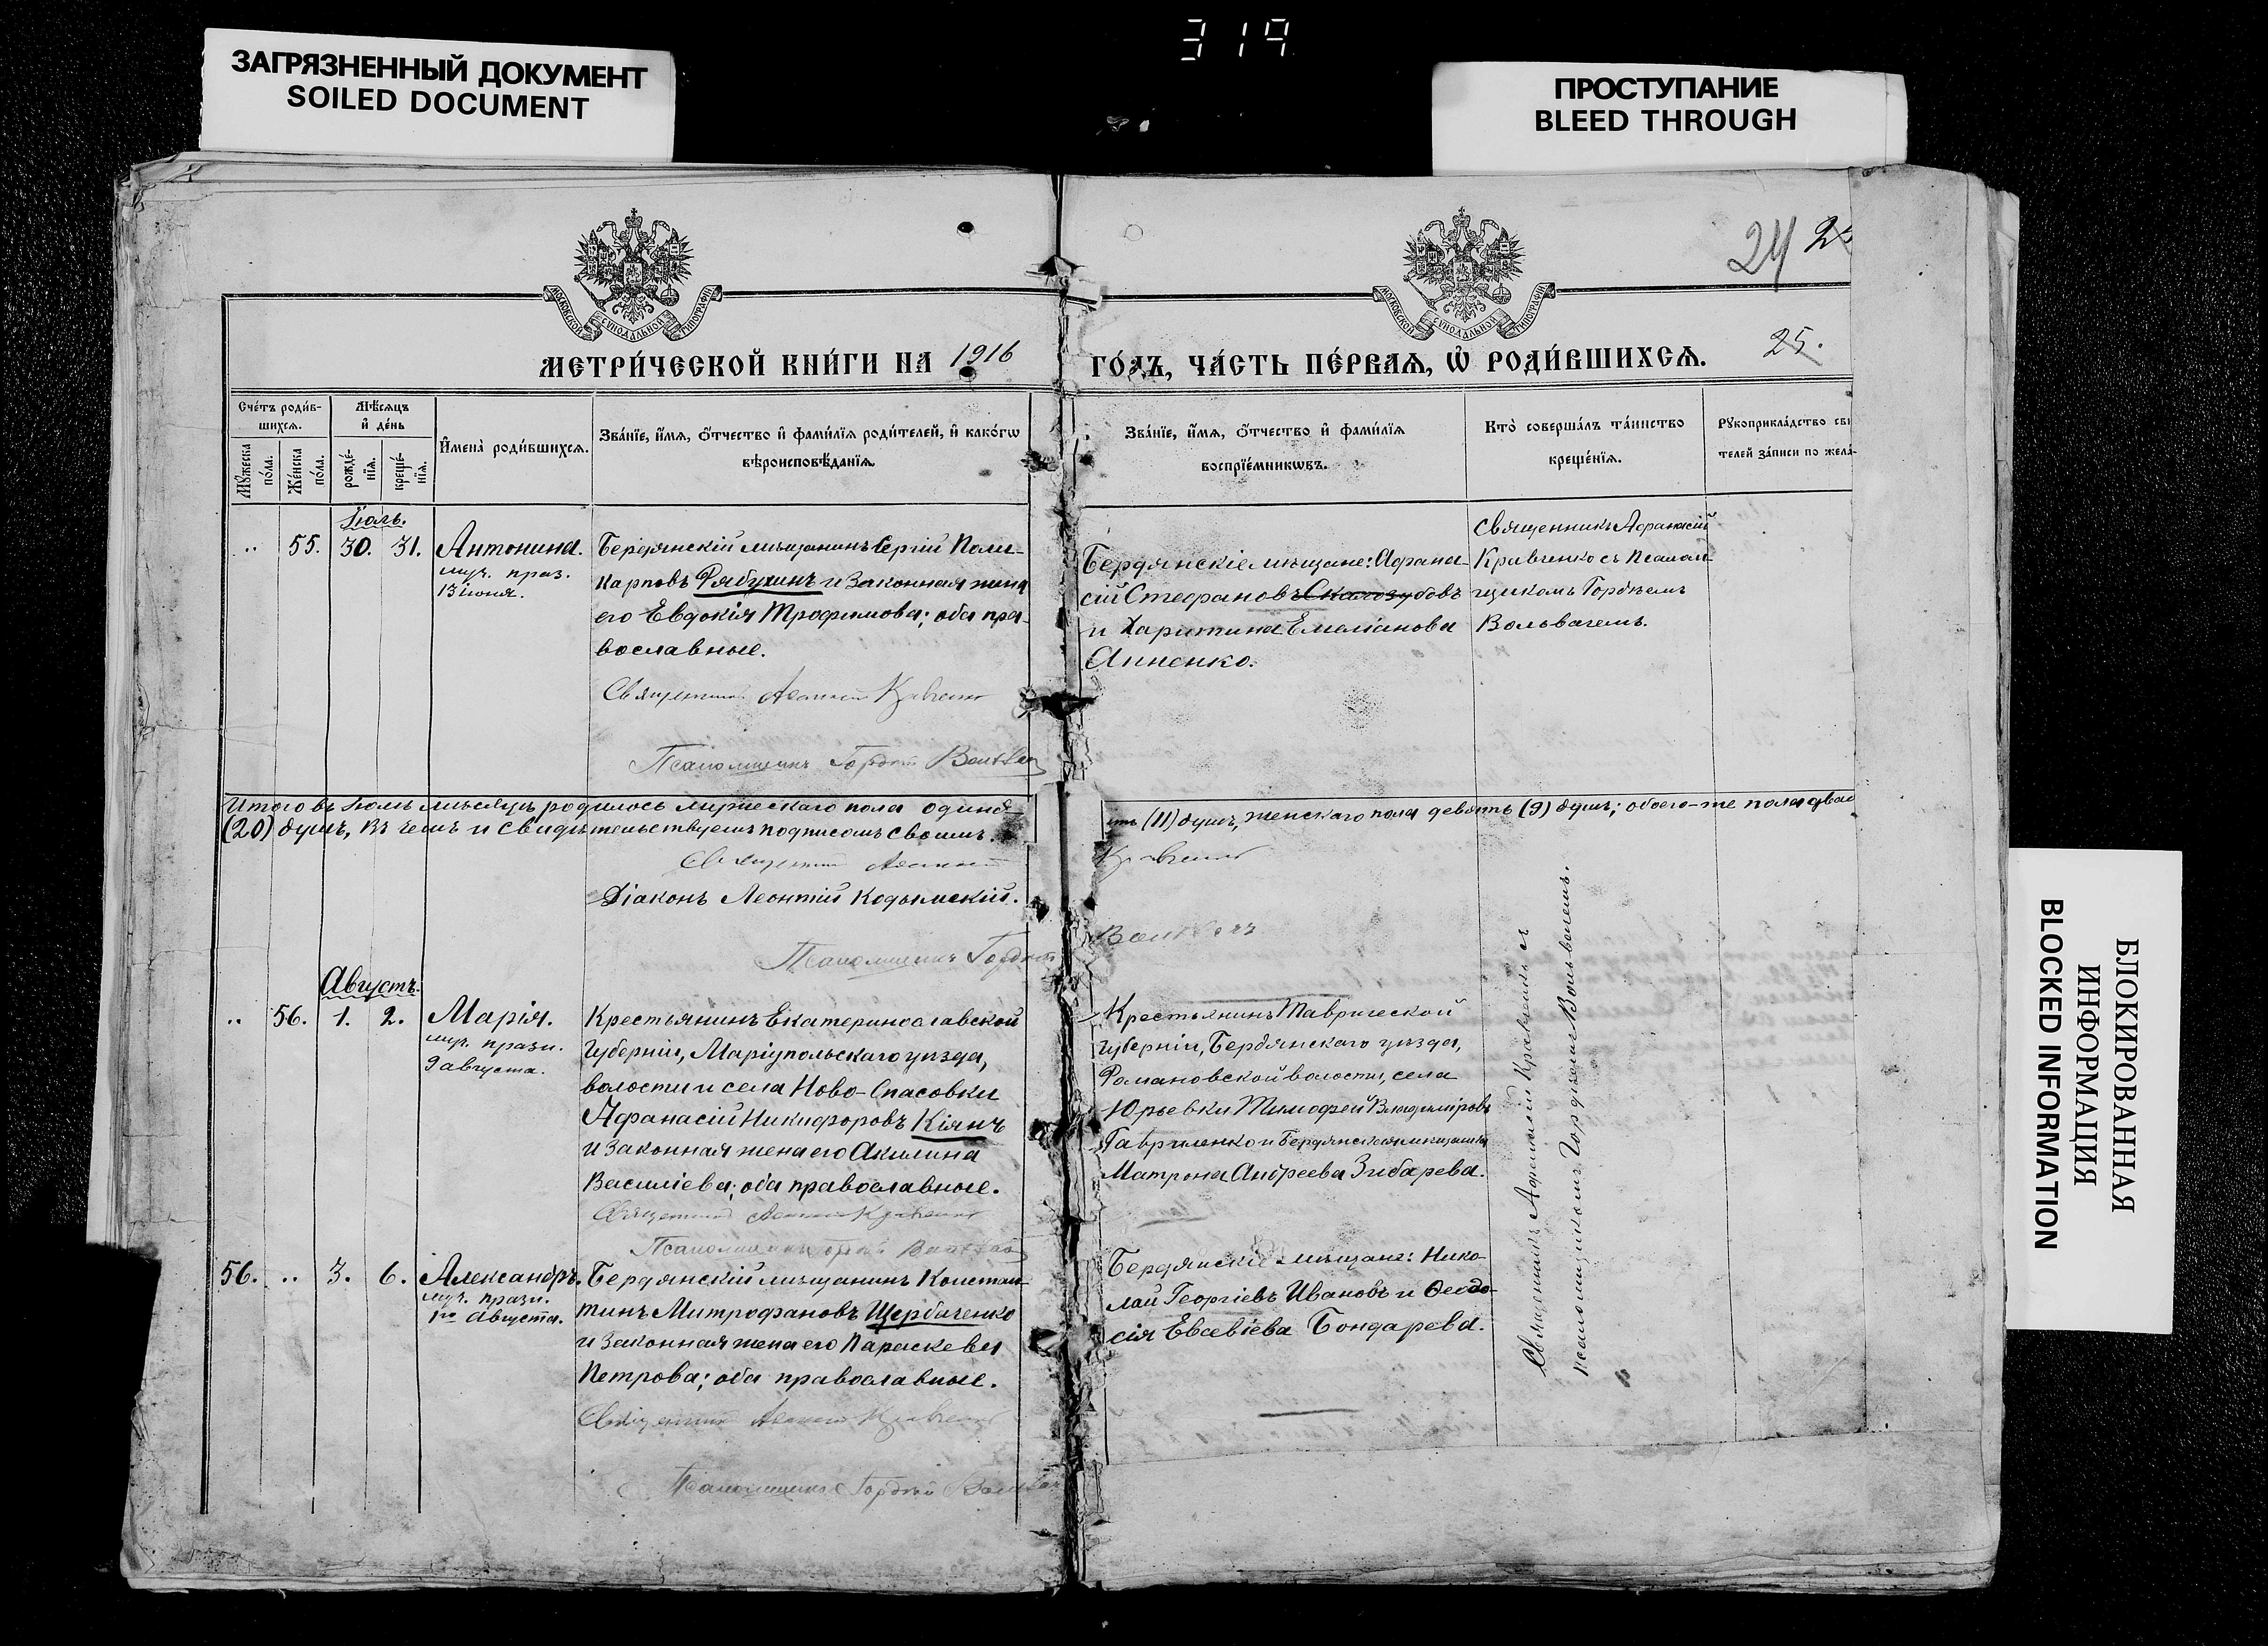 319
ЗАГРЯЗНЕННЫЙ ДОКУМЕНТ
SOILED DOCUMENT
ПРОСТУПАНИЕ
BLEED THROUGH
24
25.
МОСКОВСКОЙ СѴНОДАЛЬНОЙ ТИПОГРАФІИ
МОСКОВСКОЙ СѴНОДАЛЬНОЙ ТИПОГРАФІИ
МЕТРИ́ЧЕСКОЙ КНИ́ГИ НА 1916
ГО́ДЪ, ЧА́СТЬ ПЕ́РВАѦ, Ѡ҆ РОДИ́ВШИХСѦ.
Сче́тъ роди́в-
шихсѧ.
Мꙋ́жеска по́ла.
Же́нска по́ла.
Мѣ́сѧцъ
и҆ де́нь
рожде́-
нїѧ.
креще́-
нїѧ.
И҆мена̀ роди́вшихсѧ.
Зва́нїе, и҆́мѧ, ѻ҆́тчество и҆ фами́лїѧ роди́телей, и҆ како́гѡ
вѣроисповѣ́данїѧ.
Зва́нїе, и҆́мѧ, ѻ҆́тчество и҆ фами́лїѧ
воспрїе́мникѡвъ.
Кто̀ соверша́лъ та́инство
креще́нїѧ.
Рꙋкоприкла́дство сви
телей за́писи по жела́-
Іюль.
.. 55. 30. 31. Антонина.
муч. праз.
13 іюня.
Бердянскій мѣщанинъ Сергій Поли-
карповъ Рябухинъ и законная жена
его Евдокія Трофимова; оба пра-
вославные.
Священникъ Афанасій Кравченко
Псаломщикъ Гордѣй Вольвачъ
Бердянскіе мѣщане: Афана-
сій Стефановъ Скалозубовъ
и Харитина Емеліанова
Анненко.
Священникъ Афанасій
Кравченко съ Псалом-
щикомъ Гордѣемъ
Вольвачемъ.
Итого въ Іюлѣ мѣсяцѣ родилось мужескаго пола одинад-
ть (11) душъ, женскаго пола девять (9) душъ; обоего-же пола двад
(20) душъ, въ чемъ и свидѣтельствуемъ подписомъ своимъ.
Священникъ Афанасій Кравченко
Діаконъ Леонтій Кодымскій.
Псаломщикъ Гордѣй Вольвачъ
Августъ.
.. 56. 1. 2. Марія.
муч. празн.
9 августа.
Крестьянинъ Екатеринославской
губерніи, Маріупольскаго уѣзда,
волости и села Ново-Спасовки
Афанасій Никифоровъ Кіянъ
и законная жена его Акилина
Василіева; оба православные.
Священникъ Афанасій Кравченко
Псаломщикъ Гордѣй Вольвачъ
Крестьянинъ Таврической
губерніи, Бердянскаго уѣзда,
Романовской волости, села
Юрьевки Тимофей Владиміровъ
Гавриленко и Бердянская мѣщанка
Матрона Андреева Зибарева.
Священникъ Афанасій Кравченко съ
псаломщикомъ Гордѣемъ Вольвачемъ.
56. .. 3. 6. Александръ.
муч. празн.
1го Августа.
Бердянскій мѣщанинъ Констан-
тинъ Митрофановъ Щербаченко
и законная жена его Параскева
Петрова; оба православные.
Священникъ Афанасій Кравченко
Псаломщикъ Гордѣй Вольвачъ
Бердянскіе мѣщане: Нико-
лай Георгіевъ Ивановъ и Ѳеодо-
сія Евсевіева Бондарева.
БЛОКИРОВАННАЯ
ИНФОРМАЦИЯ
BLOCKED INFORMATION